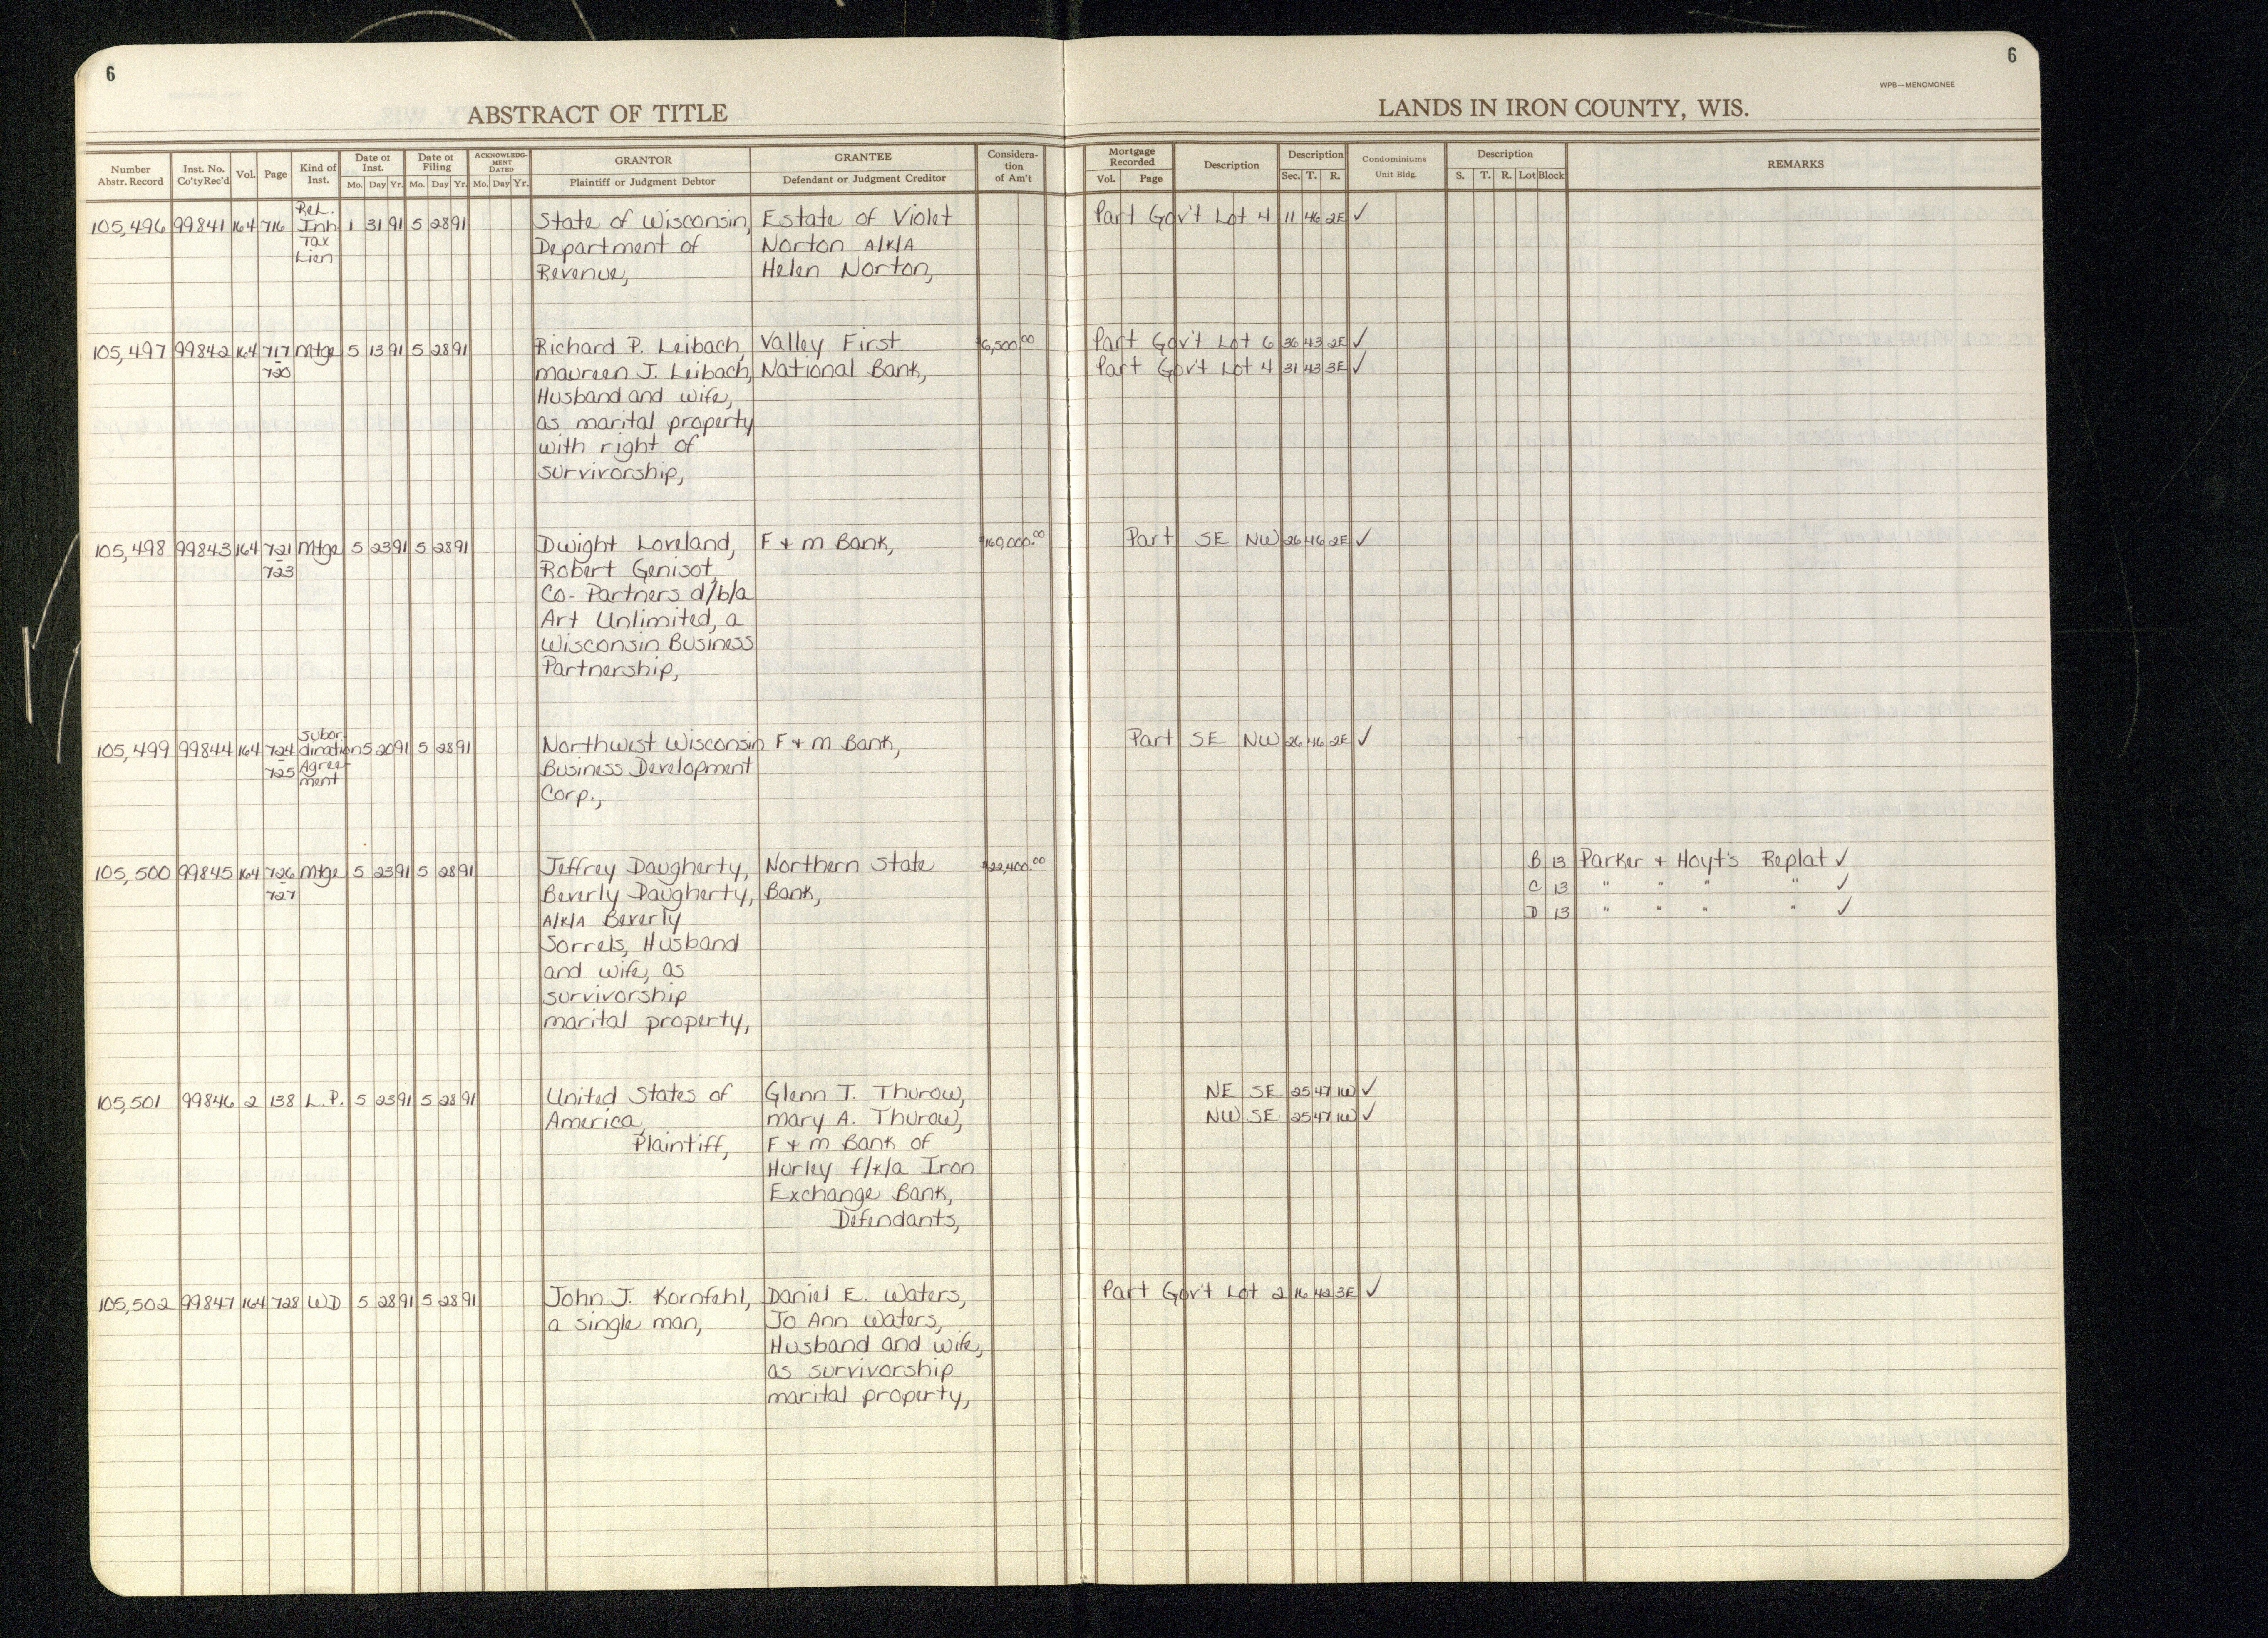 6
6
WPB—MENOMONEE
ABSTRACT OF TITLE
LANDS IN IRON COUNTY, WIS.
Number Abstr. Record
Inst. No. Co'ty Rec'd
Vol.
Page
Kind of Inst.
Date of Inst.
Mo. Day Yr.
Date of Filing
Mo. Day Yr.
ACKNOWLEDGMENT DATED
Mo. Day Yr.
GRANTOR
Plaintiff or Judgment Debtor
GRANTEE
Defendant or Judgment Creditor
Consideration of Am't
Mortgage Recorded
Vol. Page
Description
Description
Sec. T. R.
Condominiums
Unit Bldg.
Description
S. T. R. Lot Block
REMARKS
105,496 99841 164 716 Rel. Inh Tax Lien 1 31 91 5 28 91 State of Wisconsin, Estate of Violet Part Gov't Lot 4 11 46 2E ✓
Department of Norton A/K/A
Revenue, Helen Norton,
105,497 99842 164 717 Mtge 5 13 91 5 28 91 Richard P. Leibach, Valley First $6,500.00 Part Gov't Lot 6 36 43 2E ✓
-720 Maureen J. Leibach, National Bank, Part Gov't Lot 4 31 43 3E ✓
Husband and wife,
as marital property
with right of
survivorship,
105,498 99843 164 721 Mtge 5 23 91 5 28 91 Dwight Loreland, F + M Bank, $160,000.00 Part SE NW 26 46 2E ✓
-723 Robert Genisot,
Co-Partners d/b/a
Art Unlimited, a
Wisconsin Business
Partnership,
105,499 99844 164 724 Subordination Agreement 5 20 91 5 28 91 Northwest Wisconsin F + M Bank, Part SE NW 26 46 2E ✓
-725 Business Development
Corp.,
105,500 99845 164 726 Mtge 5 23 91 5 28 91 Jeffrey Daugherty, Northern State $22,400.00 B 13 Parker + Hoyt's Replat ✓
-727 Beverly Daugherty, Bank, C 13 " " " " ✓
A/K/A Beverly D 13 " " " " ✓
Sorrels, Husband
and wife, as
survivorship
marital property,
105,501 99846 2 138 L.P. 5 23 91 5 28 91 United States of Glenn T. Thurow, NE SE 25 47 1W ✓
America, Mary A. Thurow, NW SE 25 47 1W ✓
Plaintiff, F + M Bank of
Hurley f/k/a Iron
Exchange Bank,
Defendants,
105,502 99847 164 728 WD 5 28 91 5 28 91 John J. Kornfehl, Daniel E. Waters, Part Gov't Lot 2 16 42 3E ✓
a single man, Jo Ann Waters,
Husband and wife,
as survivorship
marital property,